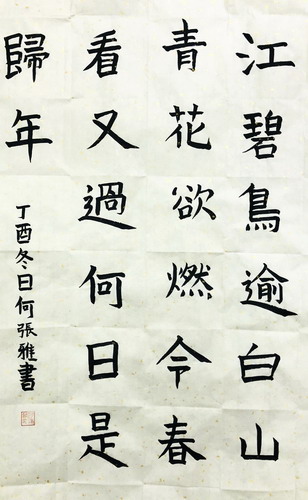 江碧鳥逾白山
青花欲燃今春
看又過何日是
歸年
丁酉冬日何張雅書